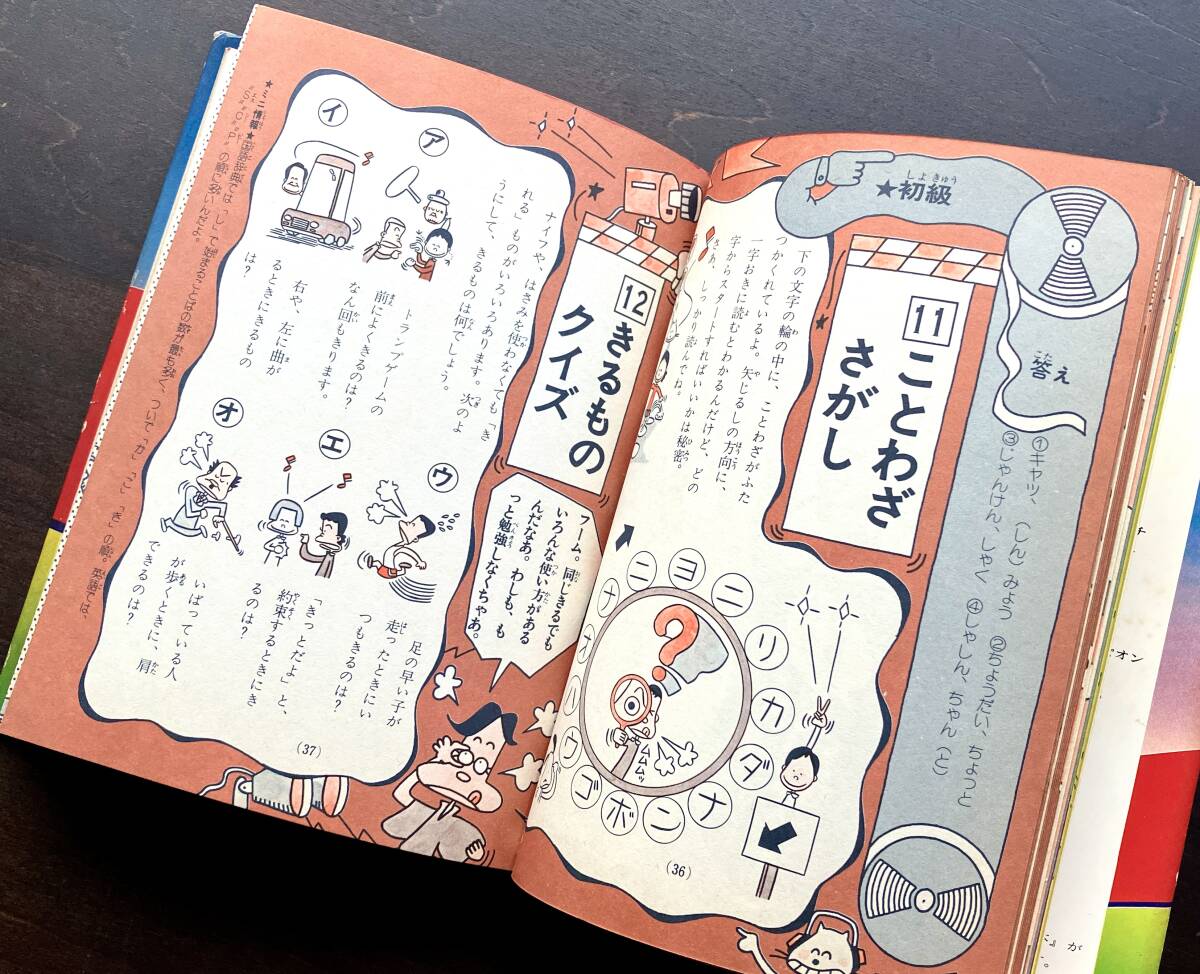 ★初級
しよきゆう
答え
こた
①キャッ、(しん)みょう ②ちょうだい、ちょっと
③じゃんけん、しゃく ④しゃしん、ちゃん(と)
11 ことわざ
さがし
下の文字の輪の中に、ことわざがふた
つかくれているよ。矢じるしの方向に、
一字おきに読むとわかるんだけど、どの
字からスタートすればいいかは秘密。
さあ、しっかり読んでね。
ニ
ヨ
ニ
リ
カ
ダ
ナ
ン
ボ
ゴ
ウ
ー
オ
ナ
ムムムッ
(36)
12 きるもの
クイズ
ナイフや、はさみを使わなくても「き
れる」ものがいろいろあります。次のよ
うにして、きるものは何でしょう。
ア
トランプゲームの
前によくきるのは?
なん回もきります。
イ
右や、左に曲が
るときにきるもの
は?
ウ
足の早い子が
走ったときにい
つもきるのは?
エ
「きっとだよ」と、
約束するときにき
るのは?
オ
いばっている人
が歩くときに、肩
できるのは?
フーム。同じきるでも
いろんな使い方がある
んだなあ。わしも、も
っと勉強しなくちゃあ。
(37)
★ミニ情報★国語辞典では「し」で始まることばの数が最も多く、ついで「か」「こ」「き」の順。英語では、
S、C、Pの順に多いんだよ。
オン
が